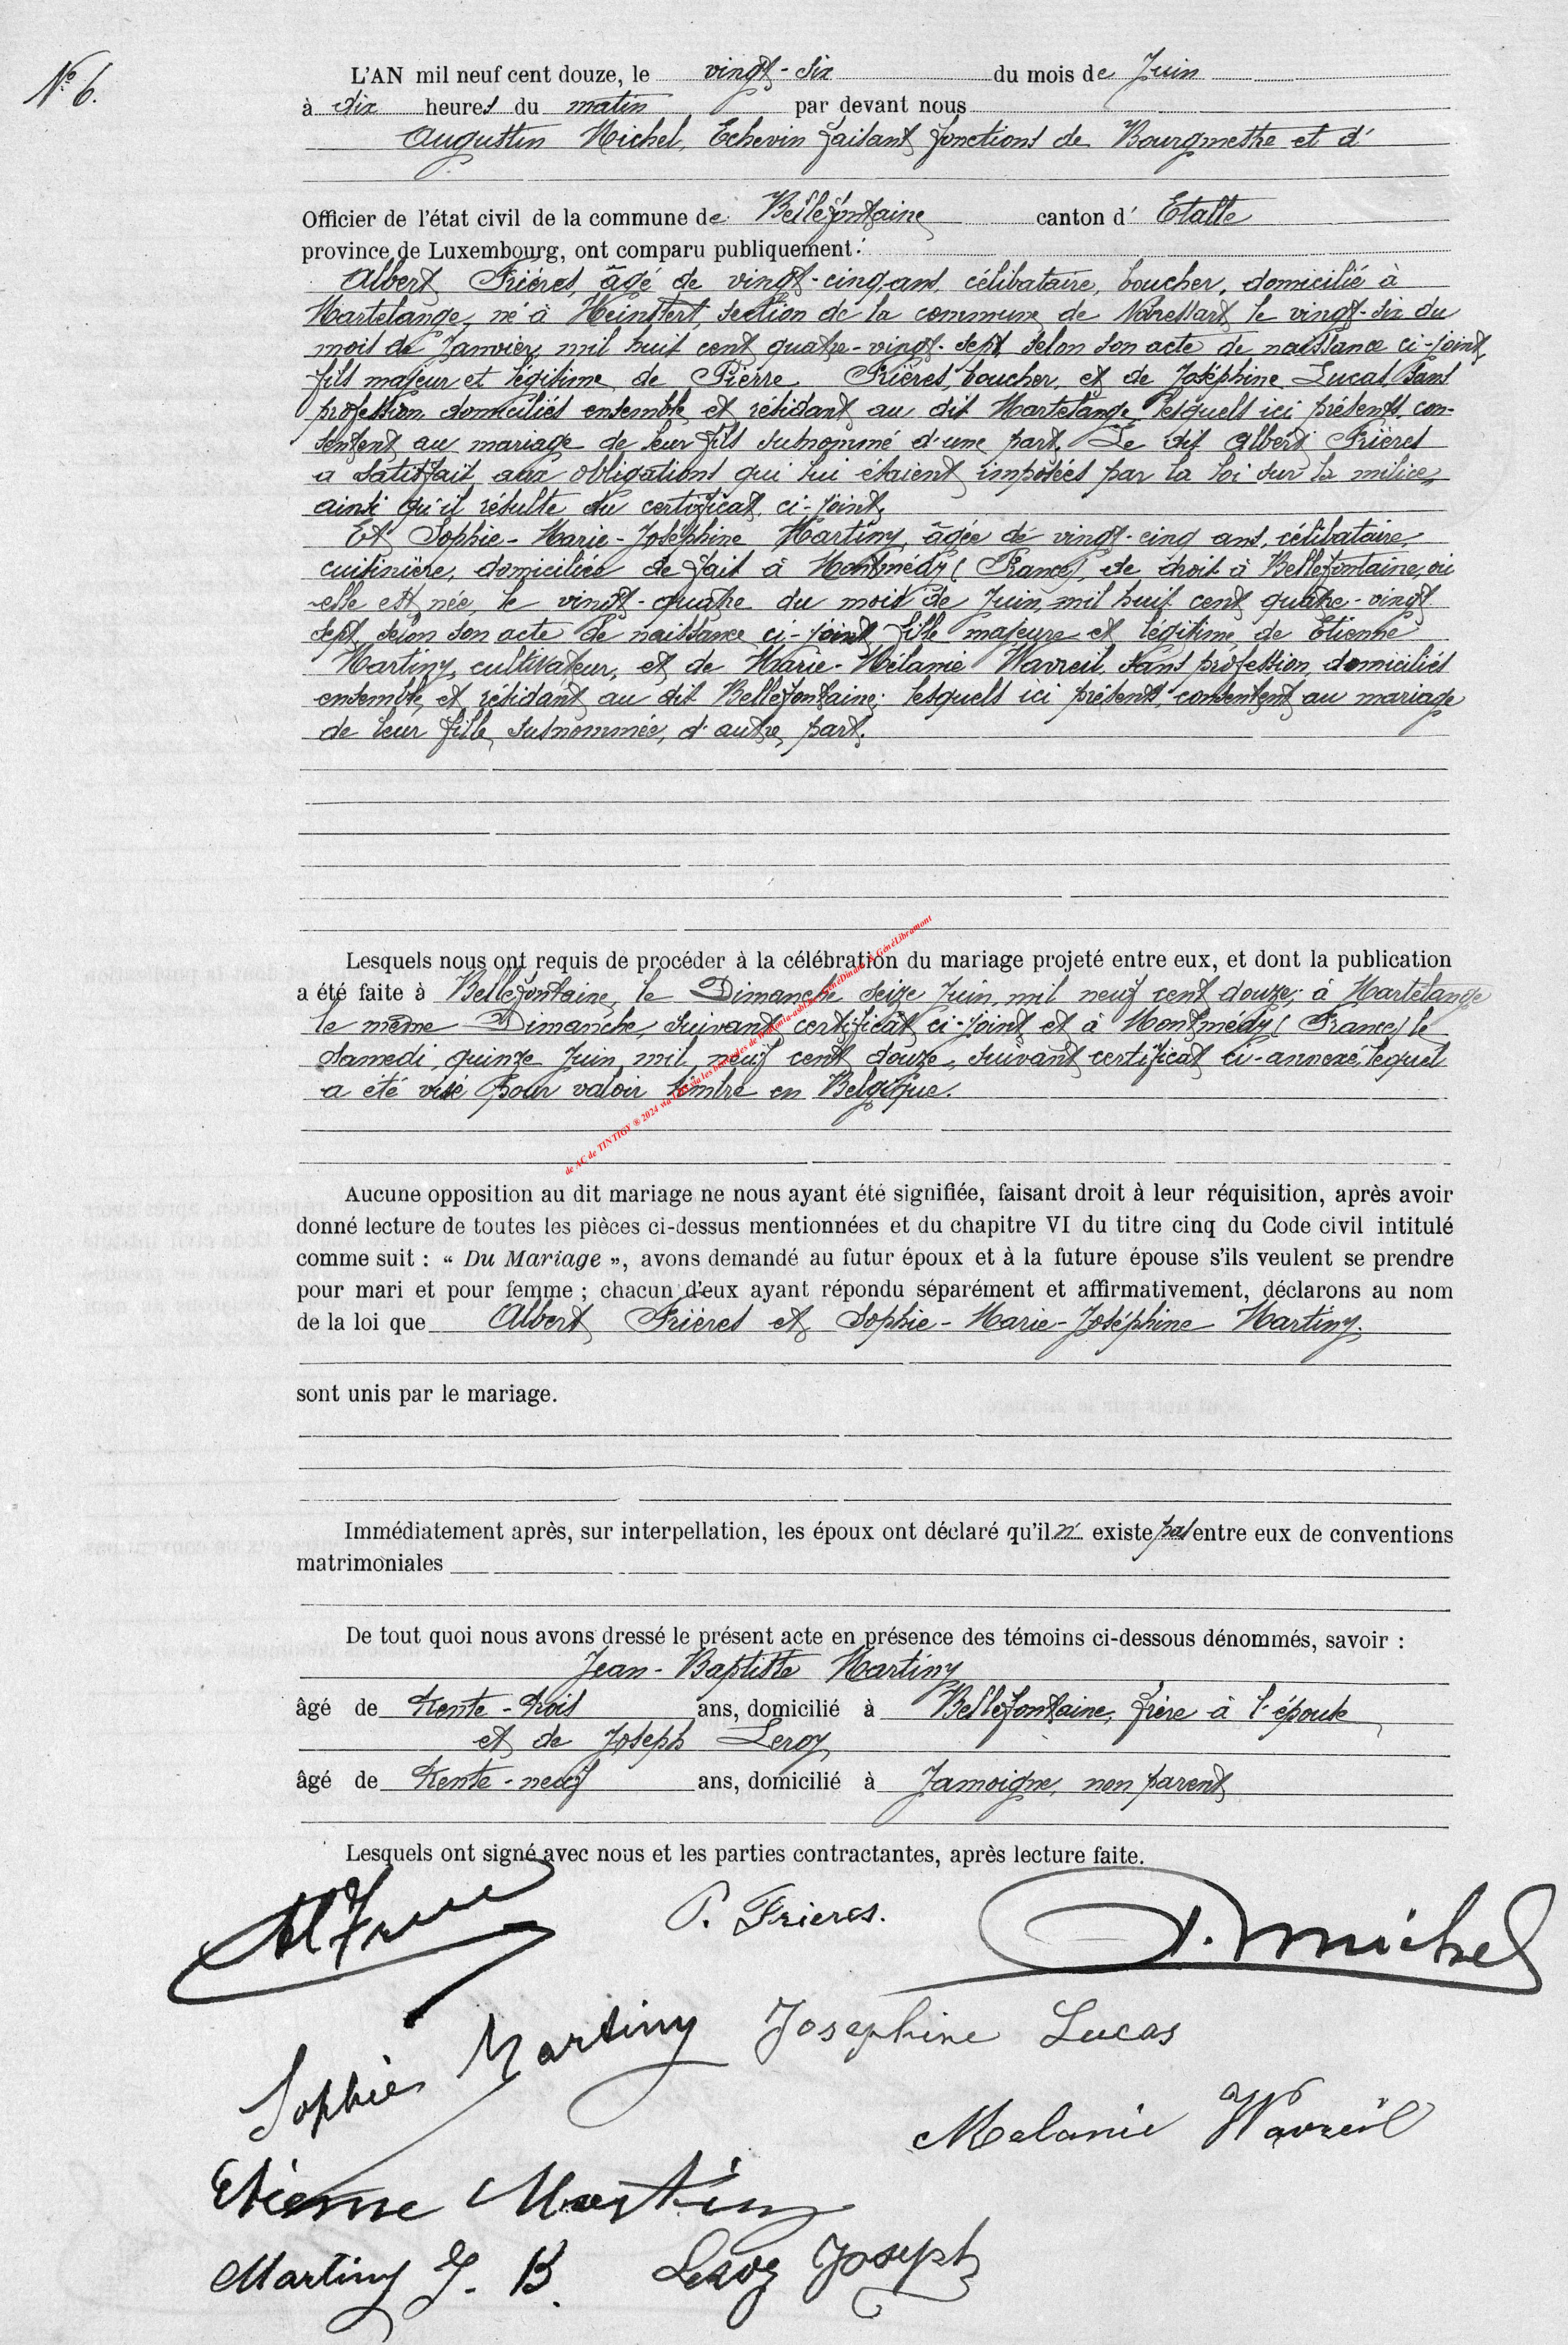 N° 6.
L'AN mil neuf cent douze, le vingt-six du mois de Juin
à dix heures du matin par devant nous
Augustin Michel, Echevin faisant fonctions de Bourgmestre et d'
Officier de l'état civil de la commune de Bellefontaine canton d' Etalle
province de Luxembourg, ont comparu publiquement :
Albert Frières, âgé de vingt-cinq ans, célibataire, boucher, domicilié à
Martelange, né à Heinstert, section de la commune de Nobressart, le vingt-six du
mois de Janvier, mil huit cent quatre-vingt-sept, selon son acte de naissance ci-joint,
fils majeur et légitime de Pierre Frières, boucher, et de Joséphine Lucas, sans
profession, domiciliés ensemble et résidant au dit Martelange, lesquels ici présents, con-
sentent au mariage de leur fils susnommé d'une part. Le dit Albert Frières
a satisfait aux obligations qui lui étaient imposées par la loi sur la milice,
ainsi qu'il résulte du certificat ci-joint,
Et Sophie-Marie-Joséphine Martiny, âgée de vingt-cinq ans, célibataire,
cuisinière, domiciliée de fait à Montmédy (France), de droit à Bellefontaine, où
elle est née, le vingt-quatre du mois de Juin, mil huit cent quatre-vingt-
sept, selon son acte de naissance ci-joint, fille majeure et légitime de Etienne
Martiny, cultivateur, et de Marie-Mélanie Wavreil, sans profession, domiciliés
ensemble et résidant au dit Bellefontaine; lesquels ici présents, consentent au mariage
de leur fille, susnommée, d'autre part.
Lesquels nous ont requis de procéder à la célébration du mariage projeté entre eux, et dont la publication
a été faite à Bellefontaine, le Dimanche seize Juin, mil neuf cent douze; à Martelange
le même Dimanche, suivant certificat ci-joint et à Montmédy (France) le
Samedi, quinze Juin, mil neuf cent douze, suivant certificat ci-annexé, lequel
a été visé pour valoir timbre en Belgique.
de AC de TINTIGY ® 2024 via
Aucune opposition au dit mariage ne nous ayant été signifiée, faisant droit à leur réquisition, après avoir
donné lecture de toutes les pièces ci-dessus mentionnées et du chapitre VI du titre cinq du Code civil intitulé
comme suit : « Du Mariage », avons demandé au futur époux et à la future épouse s'ils veulent se prendre
pour mari et pour femme ; chacun d'eux ayant répondu séparément et affirmativement, déclarons au nom
de la loi que Albert Frières et Sophie-Marie-Joséphine Martiny,
sont unis par le mariage.
Immédiatement après, sur interpellation, les époux ont déclaré qu'il n' existe pas entre eux de conventions
matrimoniales
De tout quoi nous avons dressé le présent acte en présence des témoins ci-dessous dénommés, savoir :
Jean-Baptiste Martiny
âgé de trente-trois ans, domicilié à Bellefontaine, frère à l'épouse
et de Joseph Leroy
âgé de trente-neuf ans, domicilié à Jamoigne, non parent
Lesquels ont signé avec nous et les parties contractantes, après lecture faite.
P. Frieres.
A. Michel
Sophie Martiny
Josephine Lucas
Melanie Wavreil
Etienne Martiny
Martiny J. B.
Leroy Joseph